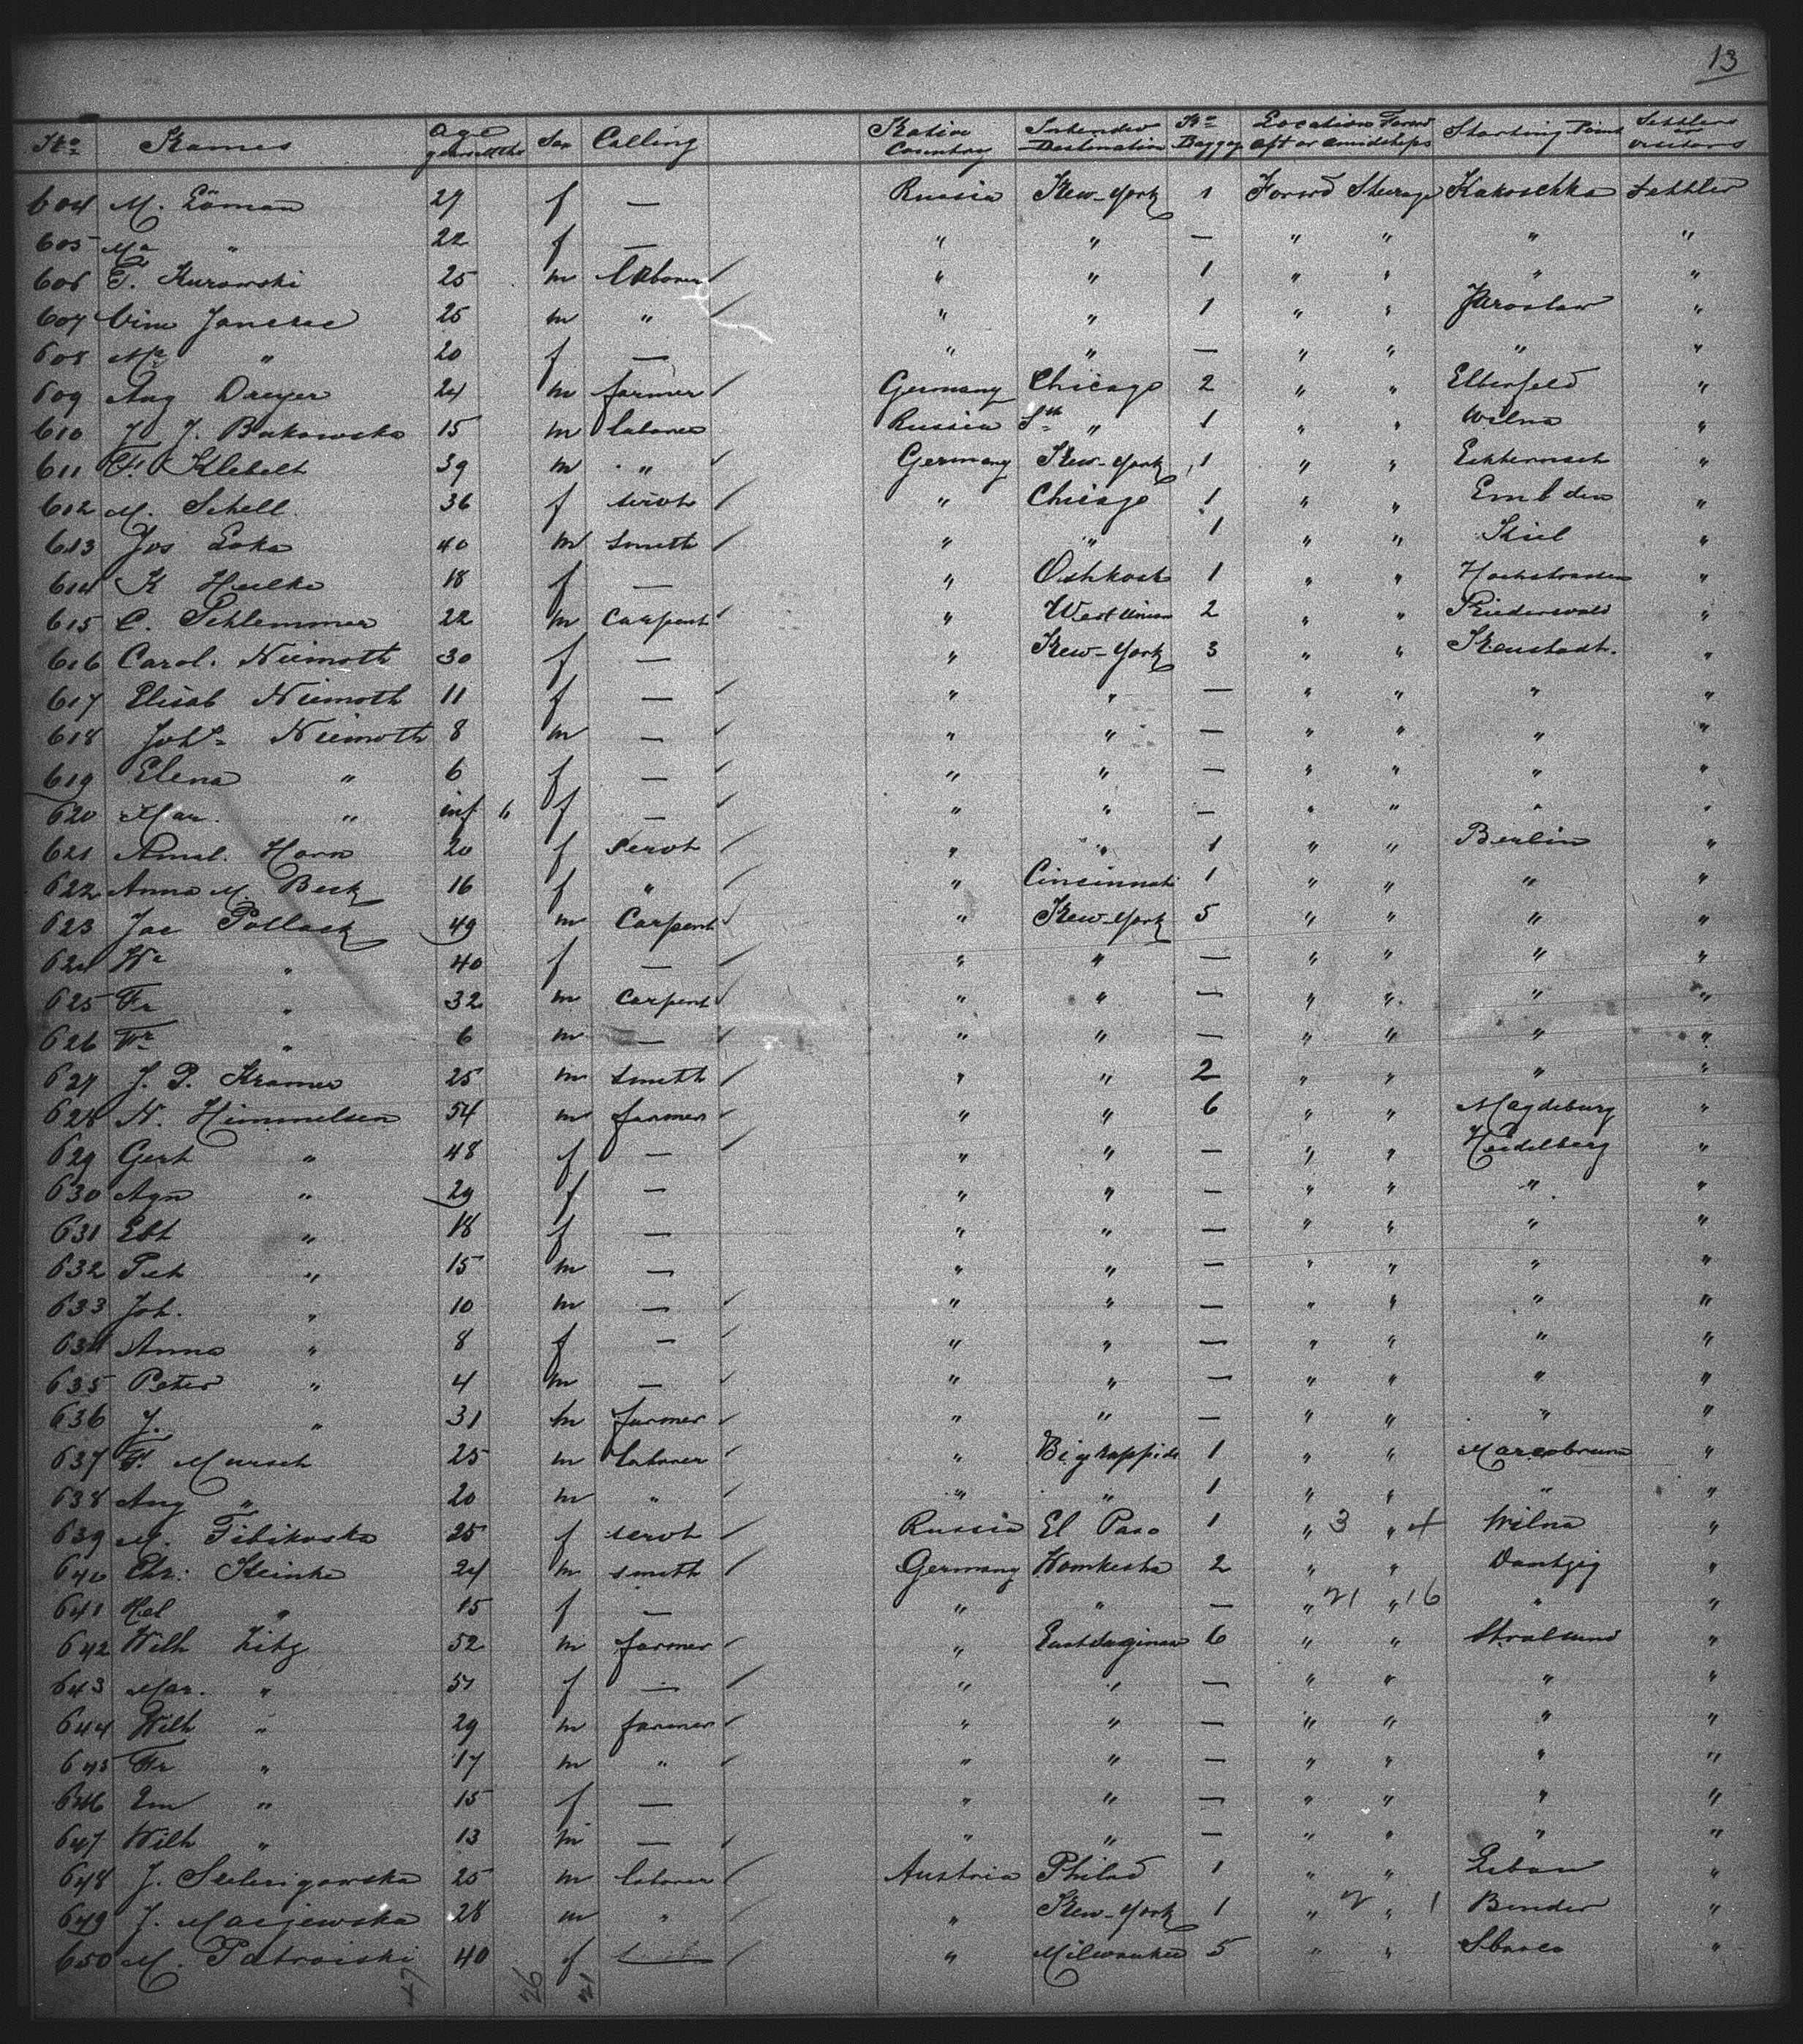 13
No Names Age years mths Sex Calling Native Country Intended Destination No Baggage Location Forwd aft or amidships Starting Point Settlers or visitors
604 M. Löman 29 f — Russia New-York 1 Forwd Steerage Kakoschka Settler
605 Ma " 22 f — " " — " " " "
606 T. Kurowski 25 m laborer " " 1 " " " "
607 Vinc Janskae 25 m " " " 1 " " Jaroslaw "
608 Ma " 20 f — " " — " " " "
609 Aug Dreyer 24 m farmer Germany Chicago 2 " " Elberfeld "
610 J. Bukowska 15 m laborer Russia Sth " 1 " " Wilna "
611 Fr. Klebelt 39 m " Germany New-York 1 " " Echternach "
612 M. Schell 36 f servt " Chicago 1 " " Embden "
613 Jos Loka 40 m smith " " 1 " " Kiel "
614 K Hulke 18 f — " Oshkosh 1 " " Hochstrassen "
615 C. Schlemmer 22 m Carpent " West Union 2 " " Niederwald "
616 Carol. Niemoth 30 f — " New-York 3 " " Neustadt. "
617 Elisab Niemoth 11 f — " " — " " " "
618 Johs Niemoth 8 m — " " — " " " "
619 Elena " 6 f — " " — " " " "
620 Mar. " inf 6 f — " " — " " " "
621 Amal. Horn 20 f Servt " " 1 " " Berlin "
622 Anna M. Beck 16 f " " Cincinnati 1 " " " "
623 Jac Pollack 49 m Carpent " New-York 5 " " " "
624 We " 40 f — " " — " " " "
625 Fr " 32 m Carpent " " — " " " "
626 Wr " 6 m — " " — " " " "
627 J. P. Kramer 25 m smith " " 2 " " " "
628 N. Himmelsen 54 m farmer " " 6 " " Magdeburg "
629 Gert " 48 f — " " — " " Heidelberg "
630 Agn " 29 f — " " — " " " "
631 Ebt " 18 f — " " — " " " "
632 Pet " 15 m — " " — " " " "
633 Joh. " 10 m — " " — " " " "
634 Anna " 8 f — " " — " " " "
635 Peter " 4 m — " " — " " " "
636 J. " 31 m farmer " " — " " " "
637 F. Mursch 25 m laborer " Big rappids 1 " " Marcobrunn "
638 Aug " 20 m " " " 1 " " " "
639 M. Fibikoska 25 f servt Russia El Paso 1 " 3 " 4 Wilna "
640 Chr: Steinke 24 m smith Germany Womkesha 2 " " Dantzig "
641 Hel " 15 f — " " — " 21 " 16 " "
642 Wilh Litz 52 m farmer " East Saginaw 6 " " Stralsund "
643 Mar. " 51 f — " " — " " " "
644 Wilh " 29 m farmer " " — " " " "
645 Fr " 17 m " " " — " " " "
646 Em " 15 f — " " — " " " "
647 Wilh " 13 m — " " — " " " "
648 J. Seelingowska 25 m laborer Austria Philad 1 " " Liban "
649 J. Maejewska 28 m " " New-York 1 " 2 " 1 Bender "
650 M. Patroiski 40 f — " Milwaukee 5 " " "
47 26 21